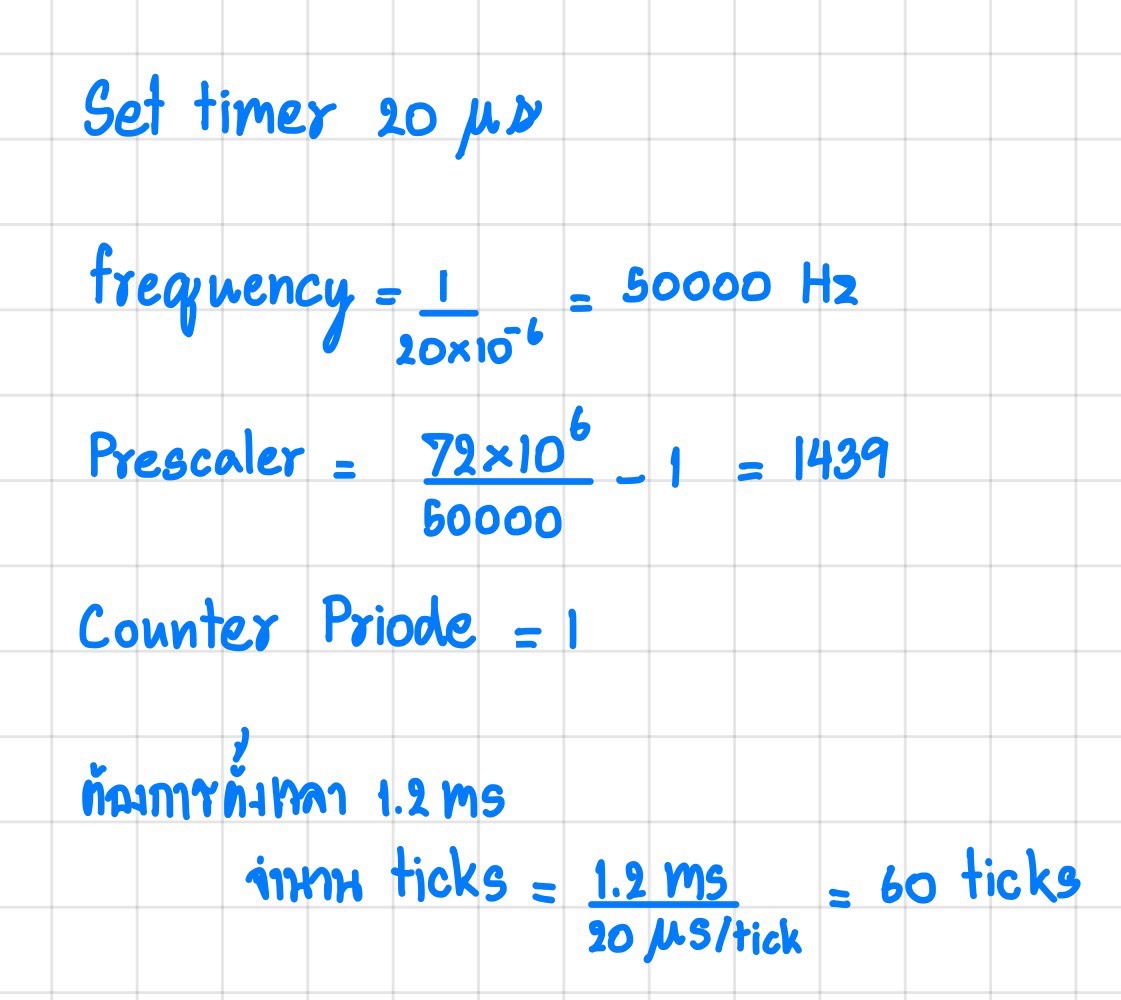 Set timer 20 μs
frequency = 1 / 20×10⁻⁶ = 50000 Hz
Prescaler = 72×10⁶ / 50000 - 1 = 1439
Counter Priode = 1
ต้องการตั้งเวลา 1.2 ms
จำนวน ticks = 1.2 ms / 20 μs/tick = 60 ticks